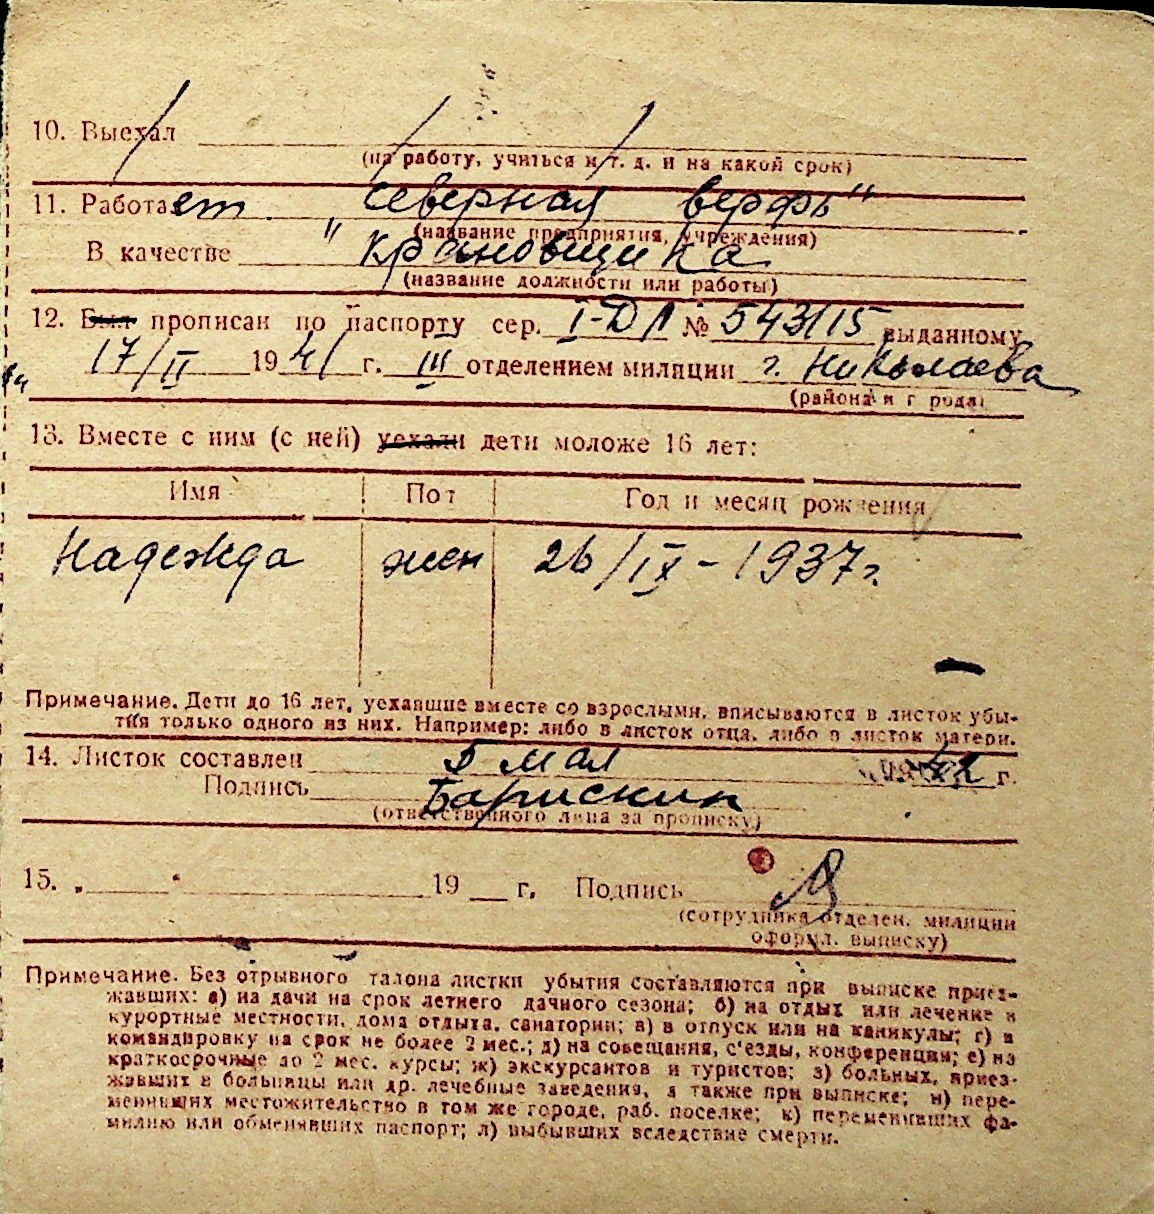 10. Выехал
(на работу, учиться и т. д. и на какой срок)
11. Работает „Северная верфь"
(название предприятия, учреждения)
В качестве " крановщика
(название должности или работы)
12. Был прописан по паспорту сер. I-ДЛ № 543115 выданному
17/II 1941 г. III отделением милиции г. Николаева
(района и города)
13. Вместе с ним (с ней) уехали дети моложе 16 лет:
Имя Пол Год и месяц рождения
Надежда жен 26/IX-1937г.
Примечание. Дети до 16 лет, уехавшие вместе со взрослыми, вписываются в листок убы-
тия только одного из них. Например: либо в листок отца, либо в листок матери.
14. Листок составлен 5 мая г.
Подпись Барискин
(ответственного лица за прописку)
15. „ " 19 г. Подпись
(сотрудника отделен. милиции
оформл. выписку)
Примечание. Без отрывного талона листки убытия составляются при выписке приез-
жавших: а) на дачи на срок летнего дачного сезона; б) на отдых или лечение в
курортные местности, дома отдыха, санатории; в) в отпуск или на каникулы; г) в
командировку на срок не более 2 мес.; д) на совещания, с'езды, конференции; е) на
краткосрочные до 2 мес. курсы; ж) экскурсантов и туристов; з) больных, приез-
жавших в больницы или др. лечебные заведения, а также при выписке; и) пере-
менивших местожительство в том же городе, раб. поселке; к) переменивших фа-
милию или обменявших паспорт; л) выбывших вследствие смерти.